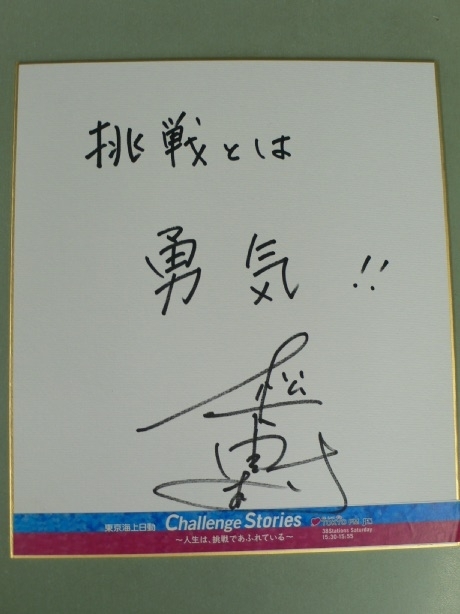 挑戦とは
勇気!!
東京海上日動 Challenge Stories
～人生は、挑戦であふれている～
TOKYO FM
38Stations Saturday
15:30-15:55